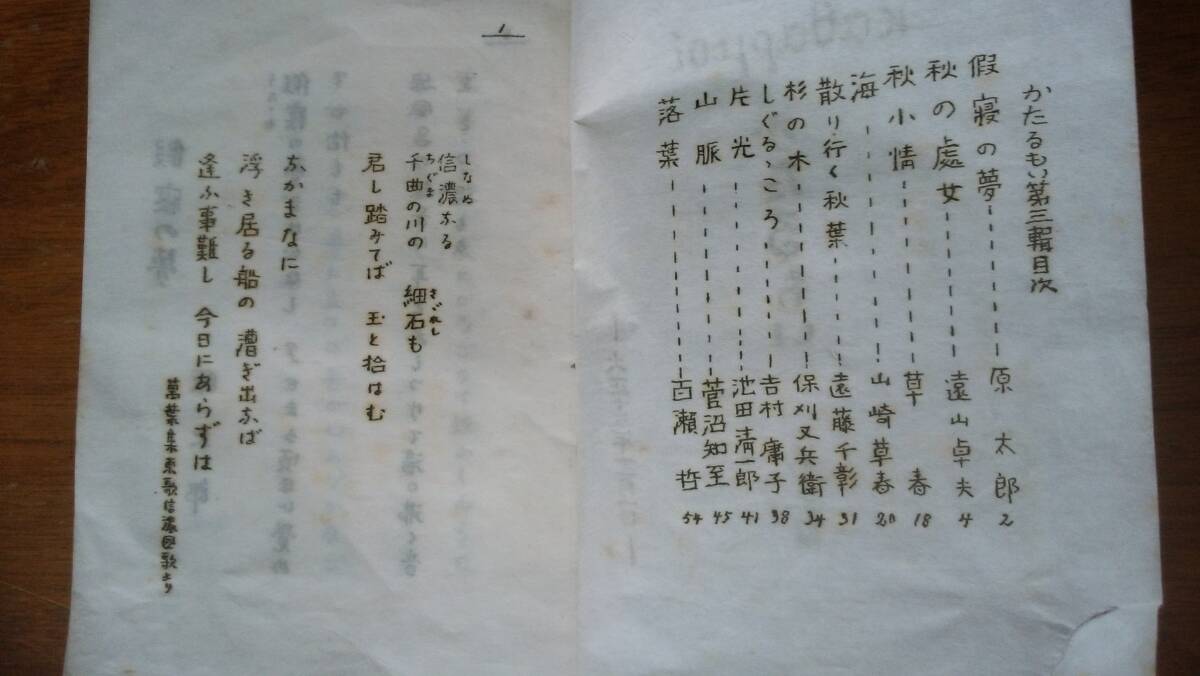 かたるもい第三輯目次
假寝の夢 原太郎 2
秋の處女 遠山卓夫 4
秋小情 草春 18
海 山崎草春 20
散り行く秋葉 遠藤千彰 31
杉の木 保刈又兵衛 34
しぐるゝころ 吉村庸子 38
片光 池田淸一郎 41
山脈 菅沼知至 45
落葉 百瀬哲 54
1
信濃なる
しなぬ
千曲の川の 細石も
ちぐま さざれし
君し踏みてば 玉と拾はむ
なかまなに
浮き居る船の 漕ぎ出なば
逢ふ事難し 今日にあらずは
萬葉集東歌信濃国歌より